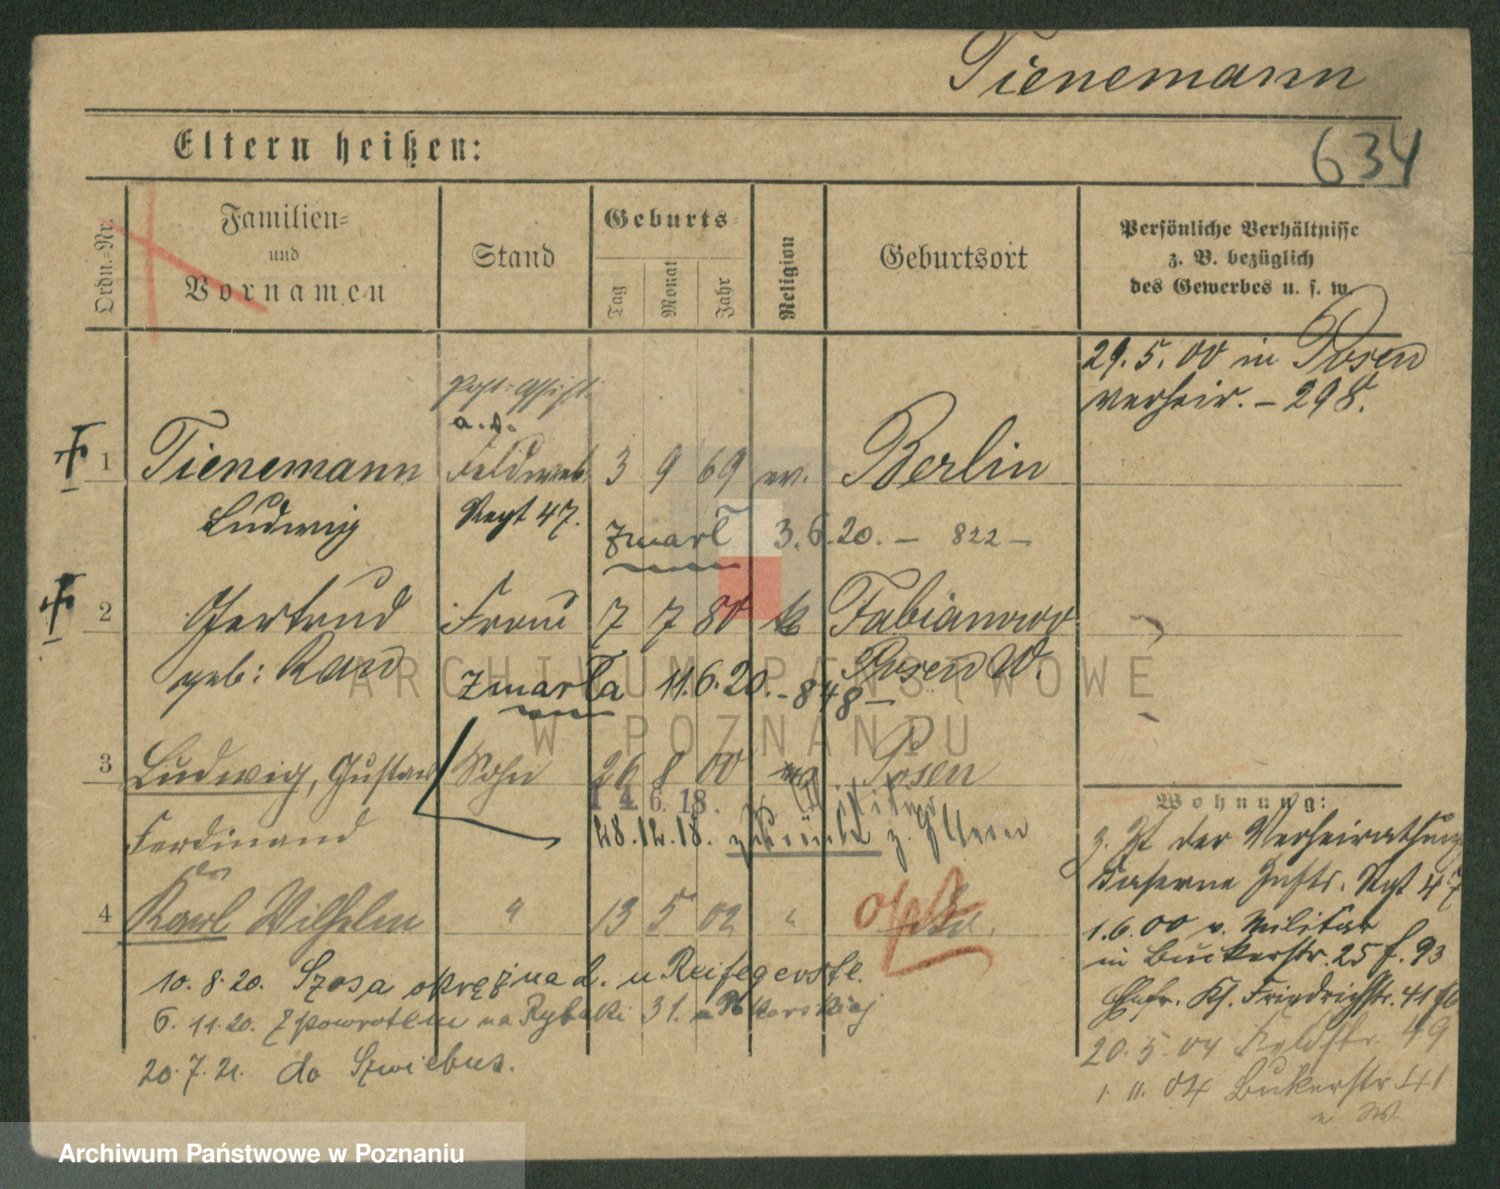 Tienemann
Eltern heißen:
634
Ordn.-Nr.
Familien- und Vornamen
Stand
Geburts-
Tag
Monat
Jahr
Religion
Geburtsort
Persönliche Verhältnisse
z. B. bezüglich
des Gewerbes u. s. w.
29.5.00 in Posen
verheir. – 298.
a. D.
1 Tienemann Feldweb. 3 9 69 ev. Berlin
Ludwig Regt 47.
zmarł 3.6.20. – 822 –
2 Gertrud Frau 7 7 80 Fabianowo
geb: Posen W.
zmarła 11.6.20. – 848 –
3 Ludwig, Gustav Sohn 26 8 00 Posen
14.6.18.
Ferdinand 28.12.18. zurück z. Eltern
Wohnung:
z. Zt der Verheirathung
Kaserne Inftr. Rgt 47
4 Karl Wilhelm " 13 5 02 "
opt
1.6.00 v. Militär
in Bukerstr. 25 f. 93
Kl. Friedrichstr. 41
20.5.04 Feldstr. 49
1.11.04 Bukerstr. 41
10.8.20. Szosa okrężna d. u Reifegerste.
6.11.20. z powrotem na Rybaki 31. u Pokarskiej
20.7.21. do Szwiebus.
ARCHIWUM PAŃSTWOWE
W POZNANIU
Archiwum Państwowe w Poznaniu